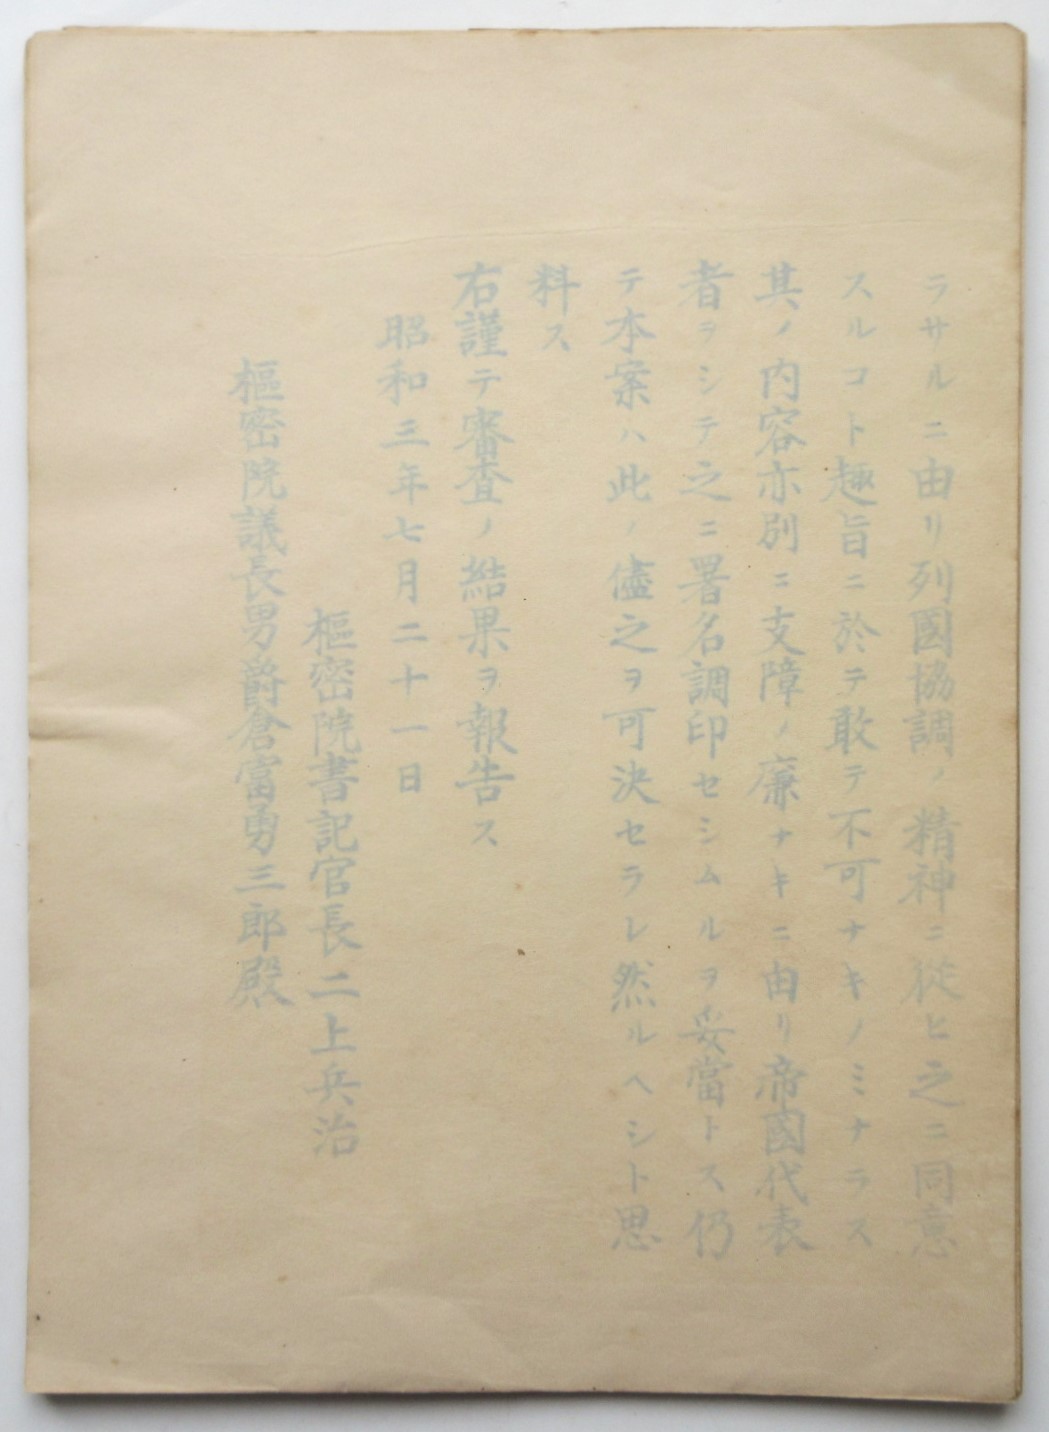 ラサルニ由リ列國協調ノ精神ニ從ヒ之ニ同意
スルコト趣旨ニ於テ敢テ不可ナキノミナラス
其ノ内容亦別ニ支障ノ廉ナキニ由リ帝國代表
者ヲシテ之ニ署名調印セシムルヲ妥當トス仍
テ本案ハ此ノ儘之ヲ可決セラレ然ルヘシト思
料ス
右謹テ審査ノ結果ヲ報告ス
昭和三年七月二十一日
樞密院書記官長二上兵治
樞密院議長男爵倉富勇三郎殿